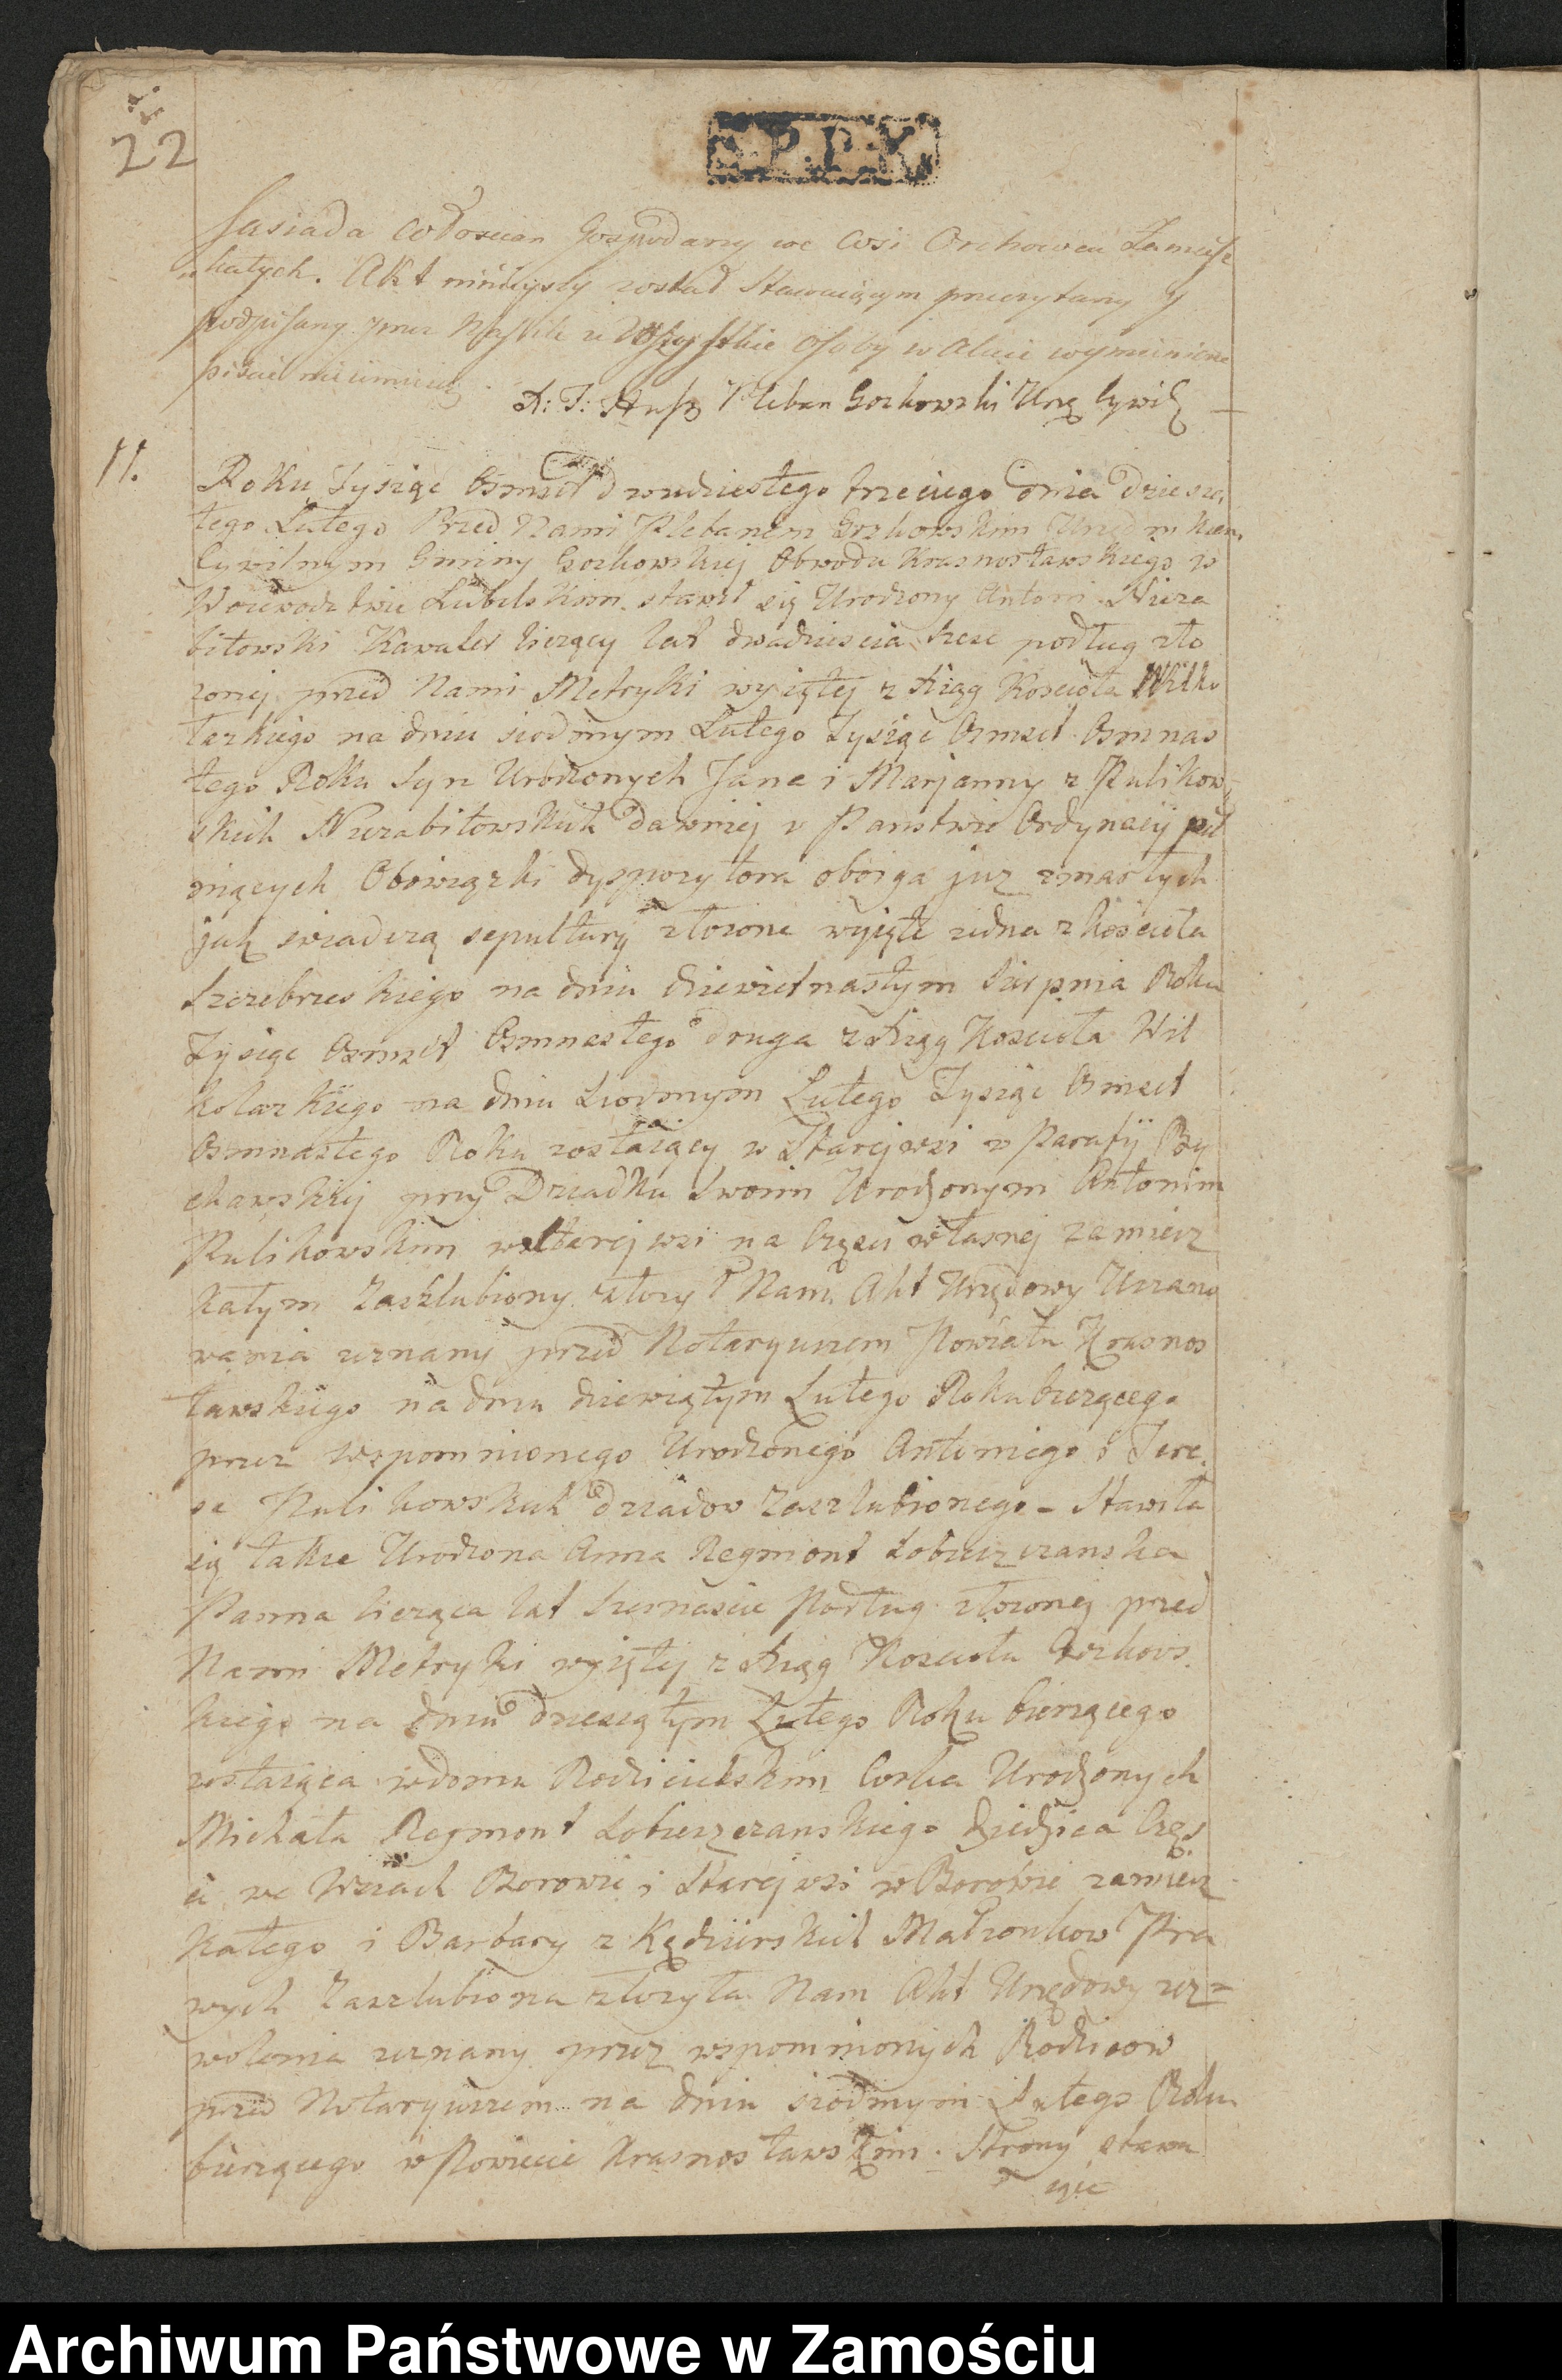 22
S.P.P.K.
sasiada Włoscian Gospodarzy we Wsi Orchowcu Zamiesz
kałych. Akt ninieyszy został Stawaiącym przeczytany y
podpisany przez Nas bile ze Wszystkie Osoby w Akcie wymienione
pisać nieumieią.
A: J: Pleban Gorkowski Urzę Cywil
11.
Roku Tysiąc Osmset dwudziestego trzeciego dnia dziesią
tego Lutego Przed Nami Plebanem Gorzkowskim Urzędnikiem
Cywilnym Gminy Gorzkowskiej Obwodu Krasnostawskiego w
Woiewodztwie Lubelskim stawił się Urodzony Antoni Nieza
bitowski Kawaler liczący lat dwadziescia trzy podług zło
zoney przed Nami Metryki wyiętej z Xiąg Koscioła Wilko
łazkiego na dniu siodmym Lutego Tysiąc Osmset Osmnas
tego Roku Syn Urodzonych Jana i Marjanny z Kulikow
skich Niezabitowskich dawniej w Panstwie Ordynacij peł
niących Obowiązki dyspozytora oboyga juz zmarłych
jak swiadczą sepultury złozone wyięte iedna z Koscioła
Szczebrzeskiego na dniu dziewietnastym Sierpnia Roku
Tysiąc Osmset Osmnastego druga z Xiąg Koscioła Wil
kolazkiego na dniu Siodmym Lutego Tysiąc Osmset
Osmnastego Roku zostaiący w Starejwsi w Parafij By
chawskiej przy Dziadku Swoim Urodzonym Antonim
Kulikowskim w Starejwsi na Częsci własnej zamiesz
kałym Zaszlubiony złozył Nam Akt Urzędowy Uszano
wania zeznany przed Notaryuszem Powiatu Krasnos
tawskiego na dniu dziewiątym Lutego Roku biezącego
przez wspomnionego Urodzonego Antoniego i Tere
se Kulikowskich dziadow Zaszlubionego - Stawiła
się takze Urodzona Anna Regmont Łobuszczanska
Panna licząca lat Podług złozonej przed
Nami Metryki wyiętej z Xiąg Koscioła Gorzkows
kiego na dniu dziesiątym Lutego Roku bierzącego
zostaiąca w domu Rodzicielskim Corka Urodzonych
Michała Regmont Łobuszczanskiego dziedzica Częs
ci we Wsiach Borowie i Starejwsi w Borowie zamiesz
kałego i Barbary z Kędzierskich Małzonkow Pra
wych Zaszlubiona złozyła Nam Akt Urzędowy zez=
wolenia zeznany przez wspomnionych Rodzicow
przed Notaryuszem na dniu siodmym Lutego Roku
bierzącego w Powiecie Krasnostawskim. Strony stawa
iące
Archiwum Państwowe w Zamościu